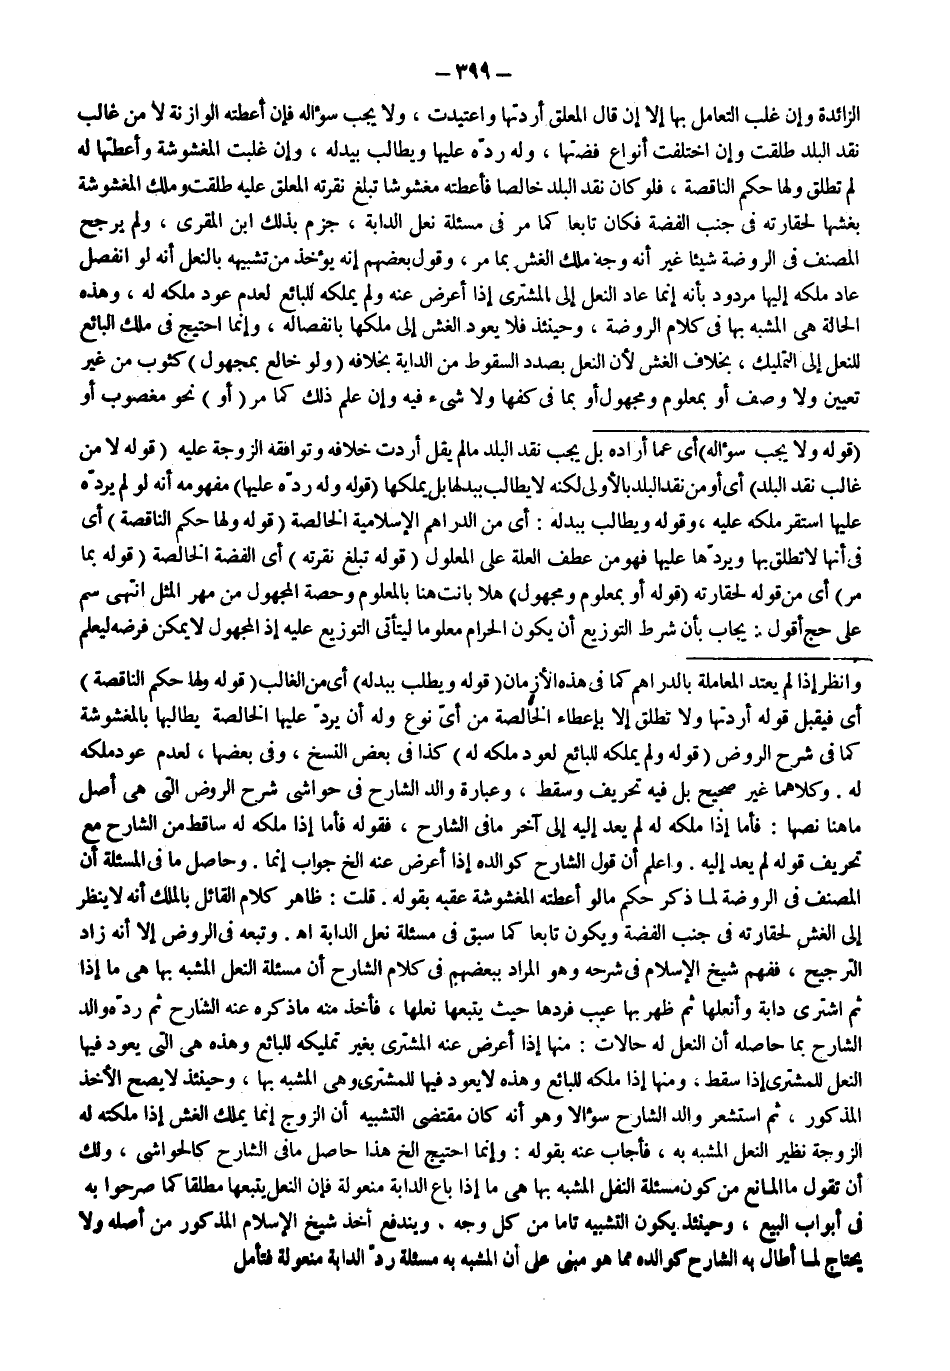 - ٣٩٩ -
الزائدة وإن غلب التعامل بها إلا إن قال المعلق أردتها واعتيدت ، ولا يجب سؤاله فإن أعطته الوازنة لا من غالب
نقد البلد طلقت وإن اختلفت أنواع فضتها ، وله ردّه عليها ويطالب ببدله ، وإن غلبت المغشوشة وأعطتها له
لم تطلق ولها حكم الناقصة ، فلو كان نقد البلد خالصا فأعطته مغشوشا تبلغ نقرته المعلق عليه طلقت وملك المغشوشة
بغشها لحقارته فى جنب الفضة فكان تابعا كما مر فى مسئلة نعل الدابة ، جزم بذلك ابن المقرى ، ولم يرجح
المصنف فى الروضة شيئا غير أنه وجه ملك الغش بما مر ، وقول بعضهم إنه يؤخذ من تشبيهه بالنعل أنه لو انفصل
عاد ملكه إليها مردود بأنه إنما عاد النعل إلى المشترى إذا أعرض عنه ولم يملكه للبائع لعدم عود ملكه له ، وهذه
الحالة هى المشبه بها فى كلام الروضة ، وحينئذ فلا يعود الغش إلى ملكها بانفصاله ، وإنما احتيج فى ملك البائع
للنعل إلى التمليك ، بخلاف الغش لأن النعل بصدد السقوط من الدابة بخلافه ( ولو خالع بمجهول ) كثوب من غير
تعيين ولا وصف أو بمعلوم ومجهول أو بما فى كفها ولا شىء فيه وإن علم ذلك كما مر ( أو ) نحو مغصوب أو
(قوله ولا يجب سؤاله) أى عما أراده بل يجب نقد البلد مالم يقل أردت خلافه وتوافقه الزوجة عليه ( قوله لا من
غالب نقد البلد) أى أو من نقد البلد بالأولى لكنه لا يطالب ببدلها بل يملكها (قوله وله ردّه عليها) مفهومه أنه لو لم يردّه
عليها استقر ملكه عليه ، وقوله ويطالب ببدله : أى من الدراهم الإسلامية الخالصة ( قوله ولها حكم الناقصة ) أى
فى أنها لا تطلق بها ويردّها عليها فهو من عطف العلة على المعلول ( قوله تبلغ نقرته ) أى الفضة الخالصة ( قوله بما
مر ) أى من قوله لحقارته (قوله أو بمعلوم ومجهول) هلا بانت هنا بالمعلوم وحصة المجهول من مهر المثل انتهى سم
على حج أقول : يجاب بأن شرط التوزيع أن يكون الحرام معلوما ليتأتى التوزيع عليه إذ المجهول لا يمكن فرضه ليعلم
وانظر إذا لم يعتد المعاملة بالدراهم كما فى هذه الأزمان (قوله ويطلب ببدله) أى من الغالب ( قوله ولها حكم الناقصة )
أى فيقبل قوله أردتها ولا تطلق إلا بإعطاء الخالصة من أىّ نوع وله أن يردّ عليها الخالصة يطالبها بالمغشوشة
كما فى شرح الروض ( قوله ولم يملكه للبائع لعود ملكه له ) كذا فى بعض النسخ ، وفى بعضها ، لعدم عود ملكه
له . وكلاهما غير صحيح بل فيه تحريف وسقط ، وعبارة والد الشارح فى حواشى شرح الروض التى هى أصل
ماهنا نصها : فأما إذا ملكه له لم يعد إليه إلى آخر مافى الشارح ، فقوله فأما إذا ملكه له ساقط من الشارح مع
تحريف قوله لم يعد إليه . واعلم أن قول الشارح كوالده إذا أعرض عنه الخ جواب إنما . وحاصل ما فى المسئلة أن
المصنف فى الروضة لما ذكر حكم مالو أعطته المغشوشة عقبه بقوله . قلت : ظاهر كلام القائل بالملك أنه لاينظر
إلى الغش لحقارته فى جنب الفضة ويكون تابعا كما سبق فى مسئلة نعل الدابة اه . وتبعه فى الروض إلا أنه زاد
الترجيح ، ففهم شيخ الإسلام فى شرحه وهو المراد ببعضهم فى كلام الشارح أن مسئلة النعل المشبه بها هى ما إذا
ثم اشترى دابة وأنعلها ثم ظهر بها عيب فردها حيث يتبعها نعلها ، فأخذ منه ماذكره عنه الشارح ثم ردّه والد
الشارح بما حاصله أن النعل له حالات : منها إذا أعرض عنه المشترى بغير تمليكه للبائع وهذه هى التى يعود فيها
النعل للمشترى إذا سقط ، ومنها إذا ملكه للبائع وهذه لايعود فيها للمشترى وهى المشبه بها ، وحينئذ لايصح الأخذ
المذكور ، ثم استشعر والد الشارح سؤالا وهو أنه كان مقتضى التشبيه أن الزوج إنما يملك الغش إذا ملكته له
الزوجة نظير النعل المشبه به ، فأجاب عنه بقوله : وإنما احتيج الخ هذا حاصل مافى الشارح كالحواشى ، ولك
أن تقول ما المانع من كون مسئلة النفل المشبه بها هى ما إذا باع الدابة منعولة فإن النعل يتبعها مطلقا كما صرحوا به
فى أبواب البيع ، وحينئذ يكون التشبيه تاما من كل وجه . ويندفع أخذ شيخ الإسلام المذكور من أصله ولا
يحتاج لما أطال به الشارح كوالده مما هو مبنى على أن المشبه به مسئلة ردّ الدابة منعولة فتأمل